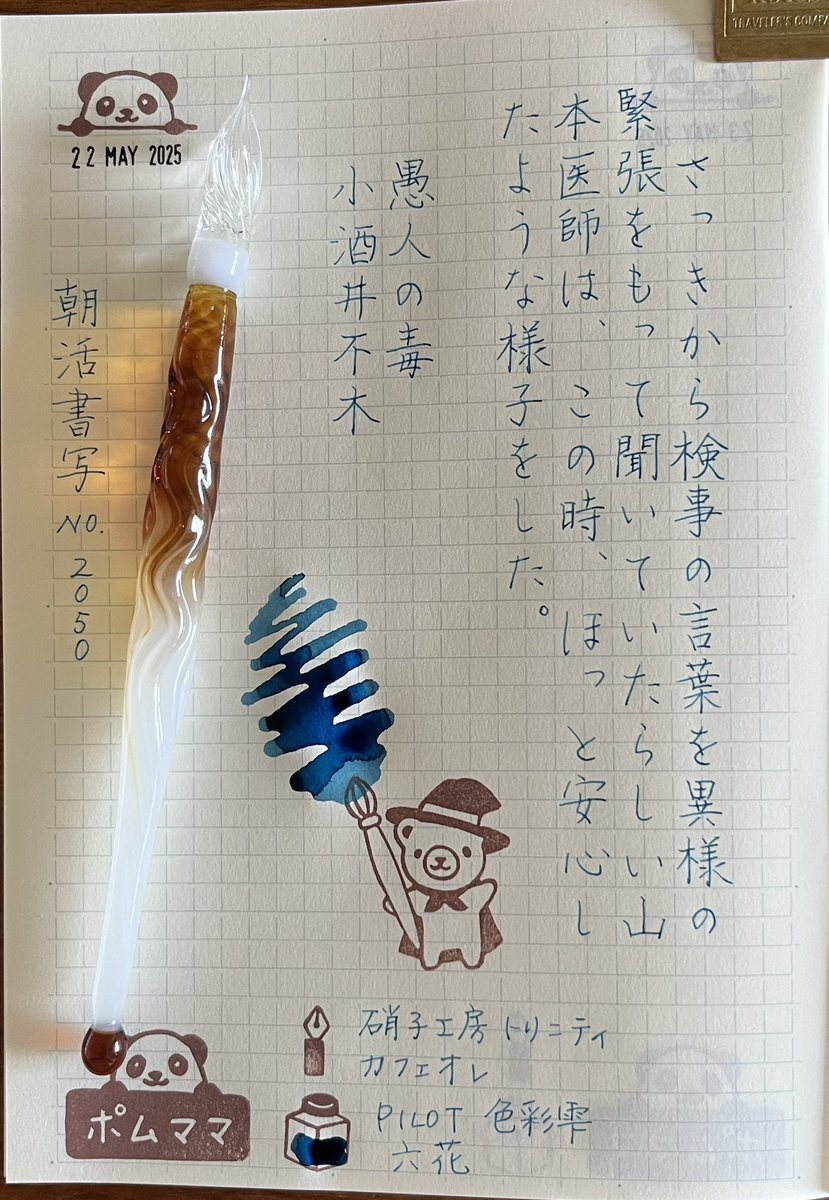 さっきから検事の言葉を異様の
緊張をもって聞いていたらしい山
本医師は、この時、ほっと安心し
たような様子をした。
愚人の毒
小酒井不木
22 MAY 2025
朝活書写 NO. 2050
硝子工房 トリニティ
カフェオレ
PILOT 色彩雫
六花
ポムママ
TRAVELER'S COMPA